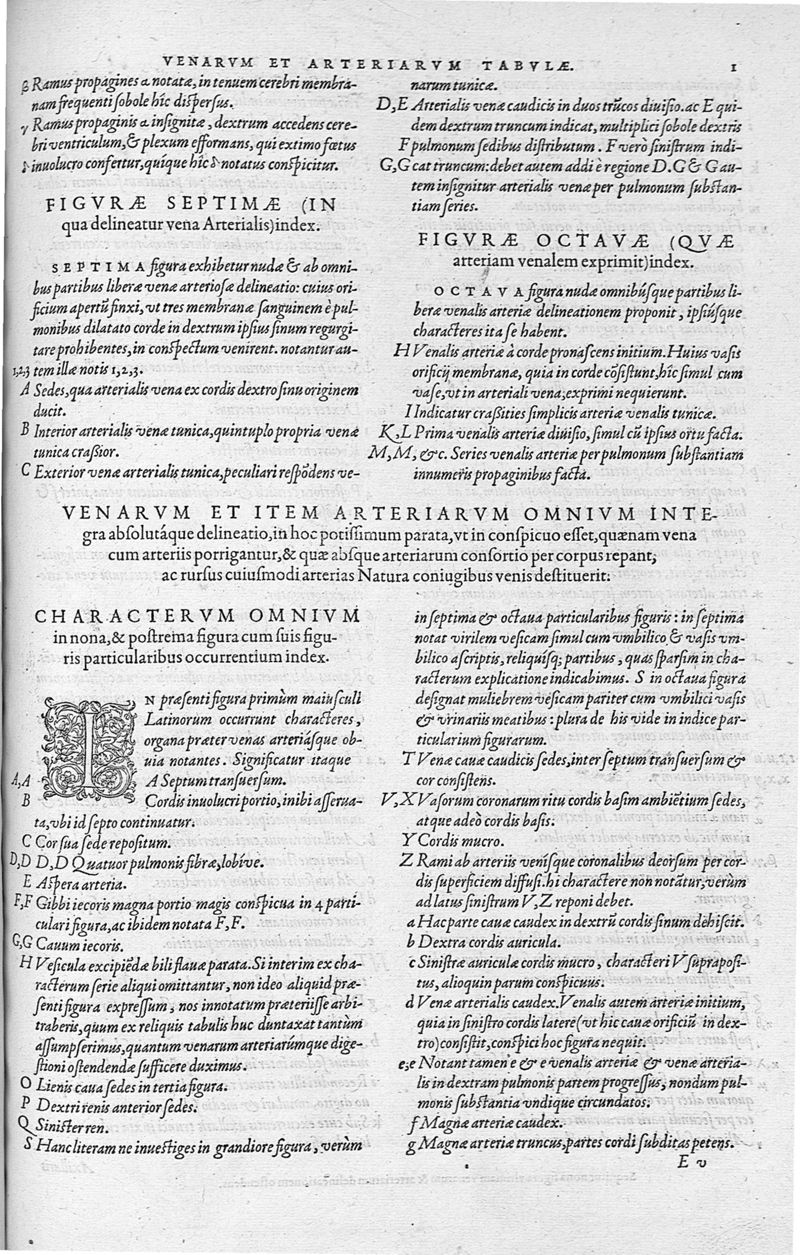 VENARVM ET ARTERIARVM TABVLÆ. 1
β Ramus propagines α notatæ, in tenuem cerebri membra-
nam frequenti sobole hîc dispersus.
γ Ramus propaginis α insignitæ, dextrum accedens cere-
bri ventriculum, & plexum efformans, qui extimo fœtus
δ inuolucro confertur, quique hîc δ notatus conspicitur.
FIGVRÆ SEPTIMÆ (IN
qua delineatur vena Arterialis) index.
SEPTIMA figura exhibetur nudæ & ab omni-
bus partibus liberæ venæ arteriosæ delineatio: cuius ori-
ficium apertũ finxi, vt tres membranæ sanguinem è pul-
monibus dilatato corde in dextrum ipsius sinum regurgi-
tare prohibentes, in conspectum venirent. notantur au-
1,2,3 tem illæ notis 1, 2, 3.
A Sedes, qua arterialis vena ex cordis dextro sinu originem
ducit.
B Interior arterialis venæ tunica, quintuplo propria venæ
tunica craßior.
C Exterior venæ arterialis tunica, peculiari respõdens ve-
narum tunicæ.
D,E Arterialis venæ caudicis in duos trũcos diuisio. ac E qui-
dem dextrum truncum indicat, multiplici sobole dextris
F pulmonum sedibus distributum. F verò sinistrum indi-
G,G cat truncum: debet autem addi è regione D. G & G au-
tem insignitur arterialis venæ per pulmonum substan-
tiam series.
FIGVRÆ OCTAVÆ (QVÆ
arteriam venalem exprimit) index.
OCTAVA figura nudæ omnibúsque partibus li-
beræ venalis arteriæ delineationem proponit, ipsiúsque
characteres ita se habent.
H Venalis arteriæ à corde pronascens initium. Huius vasis
orificij membranæ, quia in corde cõsistunt, hîc simul cum
vase, vt in arteriali vena, exprimi nequierunt.
I Indicatur craßities simplicis arteriæ venalis tunicæ.
K,L Prima venalis arteriæ diuisio, simul cũ ipsius ortu facta.
M,M, &c. Series venalis arteriæ per pulmonum substantiam
innumeris propaginibus facta.
VENARVM ET ITEM ARTERIARVM OMNIVM INTE-
gra absolutáque delineatio, in hoc potissimum parata, vt in conspicuo esset, quænam vena
cum arteriis porrigantur, & quæ absque arteriarum consortio per corpus repant;
ac rursus cuiusmodi arterias Natura coniugibus venis destituerit.
CHARACTERVM OMNIVM
in nona, & postrema figura cum suis figu-
ris particularibus occurrentium index.
IN præsenti figura primùm maiusculi
Latinorum occurrunt characteres,
organa præter venas arteriásque ob-
uia notantes. Significatur itaque
A,A A Septum transuersum.
B Cordis inuolucri portio, inibi asserua-
ta, vbi id septo continuatur.
C Cor sua sede repositum.
D,D D, D Quatuor pulmonis fibræ, lobíve.
E Aspera arteria.
F,F Gibbi iecoris magna portio magis conspicua in 4 parti-
culari figura, ac ibidem notata F, F.
G,G Cauum iecoris.
H Vesicula excipiẽdæ bili flauæ parata. Si interim ex cha-
racterum serie aliqui omittantur, non ideo aliquid præ-
senti figura expressum, nos innotatum præteriisse arbi-
traberis, quum ex reliquis tabulis huc duntaxat tantùm
assumpserimus, quantum venarum arteriarúmque dige-
stioni ostendendæ sufficere duximus.
O Lienis caua sedes in tertia figura.
P Dextri renis anterior sedes.
Q Sinister ren.
S Hanc literam ne inuestiges in grandiore figura, verùm
in septima & octaua particularibus figuris: in septima
notat virilem vesicam simul cum vmbilico & vasis vm-
bilico ascriptis, reliquisq; partibus, quas sparsim in cha-
racterum explicatione indicabimus. S in octaua figura
designat muliebrem vesicam pariter cum vmbilici vasis
& vrinariis meatibus: plura de his vide in indice par-
ticularium figurarum.
T Venæ cauæ caudicis sedes, inter septum transuersum &
cor consistens.
V,X Vasorum coronarum ritu cordis basim ambiẽtium sedes,
atque adeò cordis basis.
Y Cordis mucro.
Z Rami ab arteriis venísque coronalibus deorsum per cor-
dis superficiem diffusi. hi charactere non notãtur, verùm
ad latus sinistrum V, Z reponi debet.
a Hac parte cauæ caudex in dextrũ cordis sinum dehiscit.
b Dextra cordis auricula.
c Sinistræ auriculæ cordis mucro, characteri V supraposi-
tus, alioquin parum conspicuus.
d Venæ arterialis caudex. Venalis autem arteriæ initium,
quia in sinistro cordis latere (vt hic cauæ orificiũ in dex-
tro) consistit, conspici hoc figura nequit.
e,e Notant tamen e & e venalis arteriæ & venæ arteria-
lis in dextram pulmonis partem progressus, nondum pul-
monis substantia vndique circundatos.
f Magnæ arteriæ caudex.
g Magnæ arteriæ truncus, partes cordi subditas petens.
E v